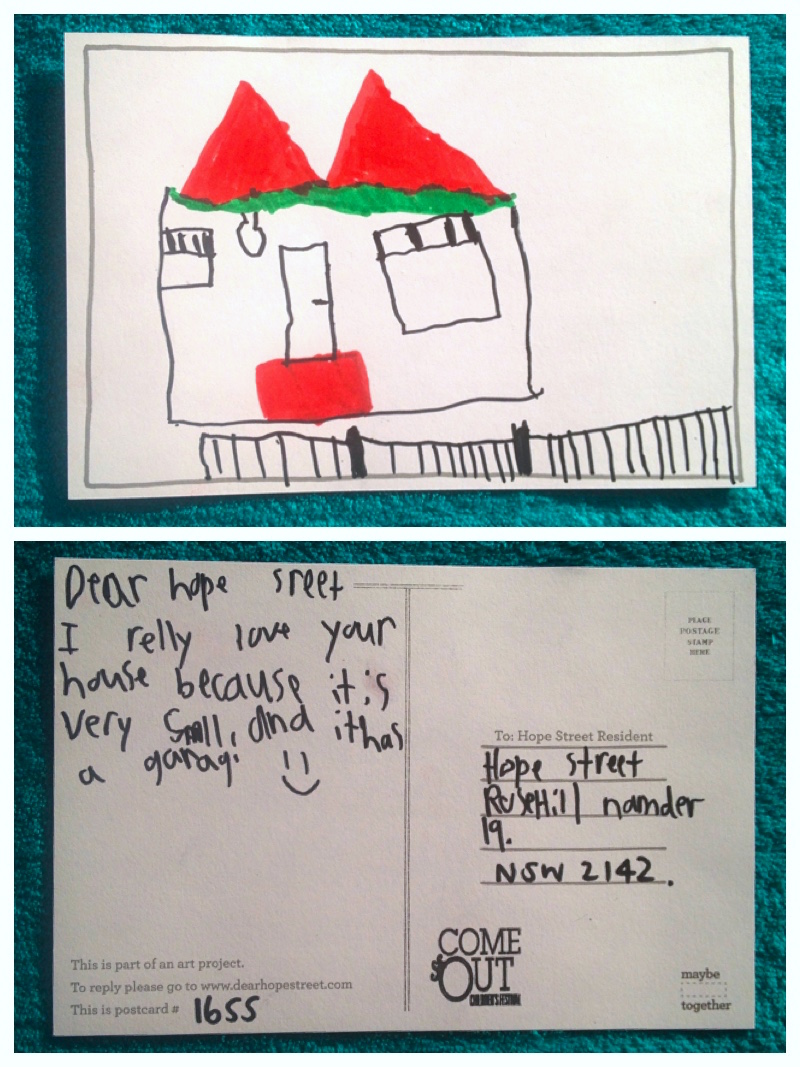 Dear hope sreet
I relly love your
house because it is
very Small, and it has
a garag.
PLACE
POSTAGE
STAMP
HERE
To: Hope Street Resident
Hope street
RoseHill namder
19.
NSW 2142.
This is part of an art project.
To reply please go to www.dearhopestreet.com
This is postcard # 1655
COME
OUT
CHILDREN'S FESTIVAL
maybe
together